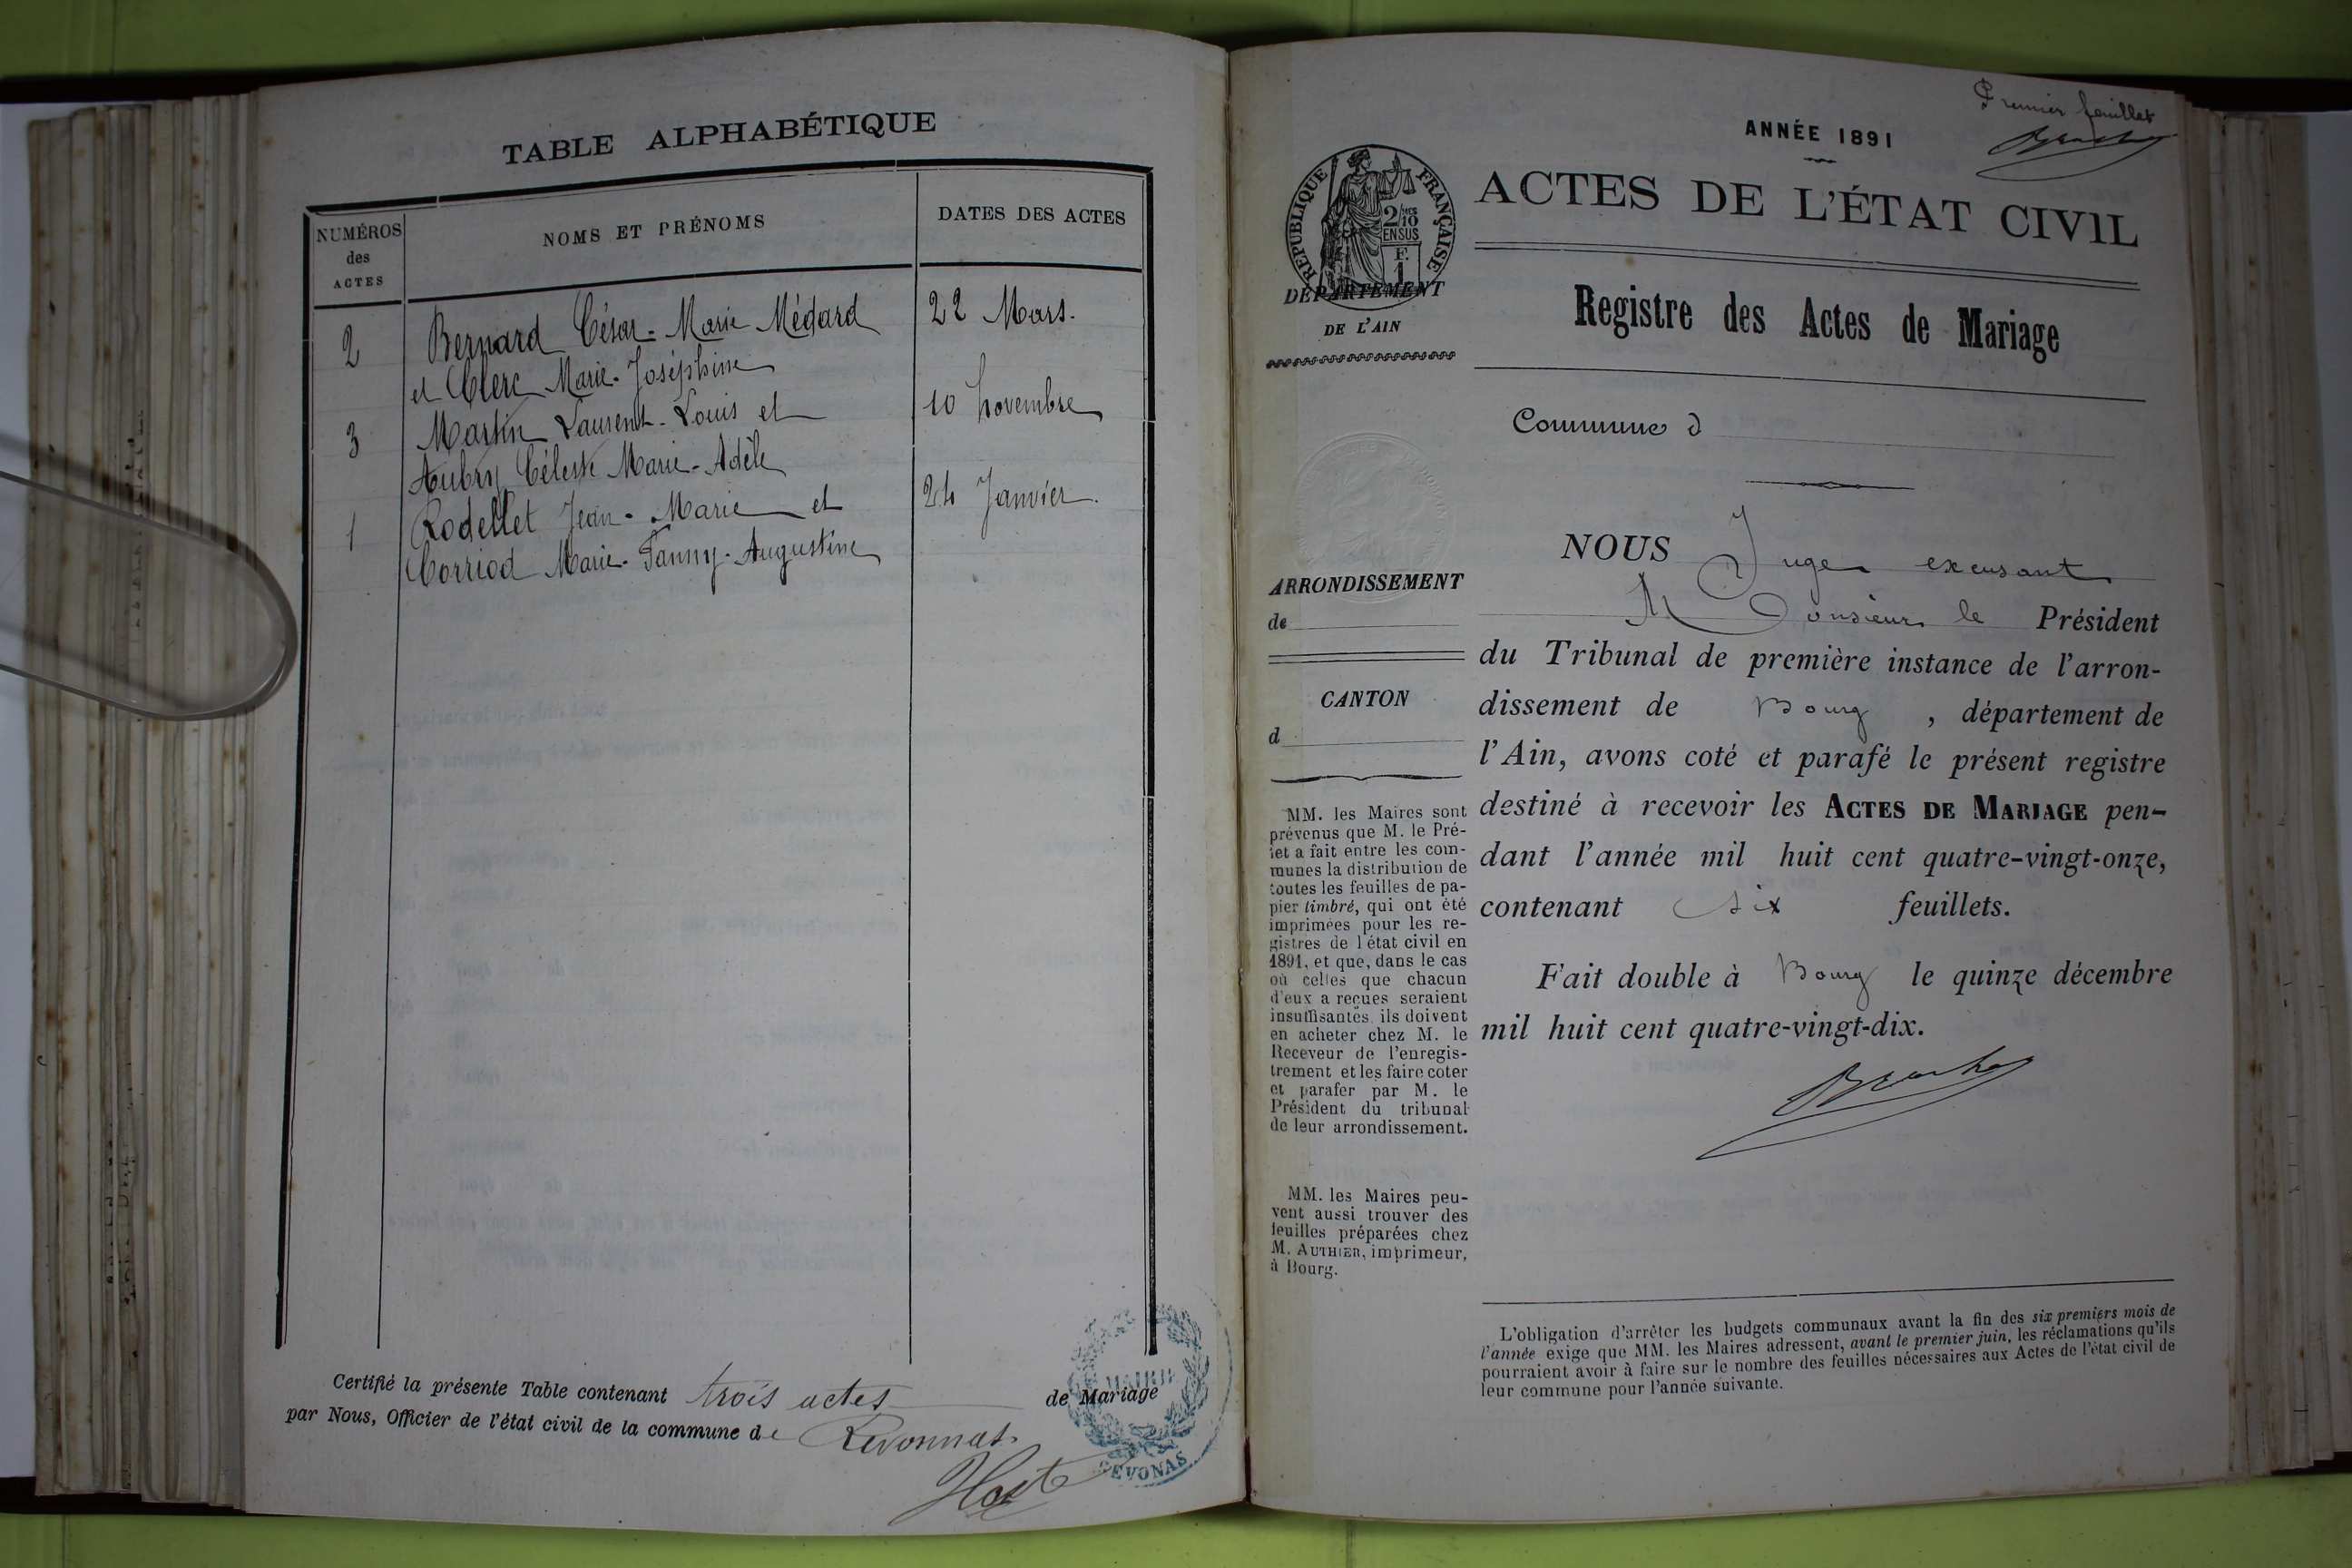 TABLE ALPHABÉTIQUE
NUMÉROS
des
ACTES
NOMS ET PRÉNOMS
DATES DES ACTES
2 Bernard César-Marie Médard 22 Mars.
et Clerc Marie-Joséphine
3 Martin Laurent-Louis et 10 Novembre
Aubry Céleste Marie-Adèle
1 Rodellet Jean-Marie et 24 Janvier.
Corriod Marie-Fanny-Augustine
Certifié la présente Table contenant trois actes de Mariage
par Nous, Officier de l'état civil de la commune de Revonnas.
MAIRIE
REVONAS
Premier feuillet
ANNÉE 1891
RÉPUBLIQUE FRANÇAISE
2/10
EN SUS
F.
1
ACTES DE L'ÉTAT CIVIL
DÉPARTEMENT
DE L'AIN
Registre des Actes de Mariage
Commune d
ARRONDISSEMENT
de
CANTON
d
MM. les Maires sont
prévenus que M. le Pré-
fet a fait entre les com-
munes la distribution de
toutes les feuilles de pa-
pier timbré, qui ont été
imprimées pour les re-
gistres de l'état civil en
1891, et que, dans le cas
où celles que chacun
d'eux a reçues seraient
insuffisantes, ils doivent
en acheter chez M. le
Receveur de l'enregis-
trement et les faire coter
et parafer par M. le
Président du tribunal
de leur arrondissement.
MM. les Maires peu-
vent aussi trouver des
feuilles préparées chez
M. AUTHIER, imprimeur,
à Bourg.
NOUS Juge excusant
Monsieur le Président
du Tribunal de première instance de l'arron-
dissement de Bourg, département de
l'Ain, avons coté et parafé le présent registre
destiné à recevoir les ACTES DE MARIAGE pen-
dant l'année mil huit cent quatre-vingt-onze,
contenant six feuillets.
Fait double à Bourg le quinze décembre
mil huit cent quatre-vingt-dix.
L'obligation d'arrêter les budgets communaux avant la fin des six premiers mois de
l'année exige que MM. les Maires adressent, avant le premier juin, les réclamations qu'ils
pourraient avoir à faire sur le nombre des feuilles nécessaires aux Actes de l'état civil de
leur commune pour l'année suivante.